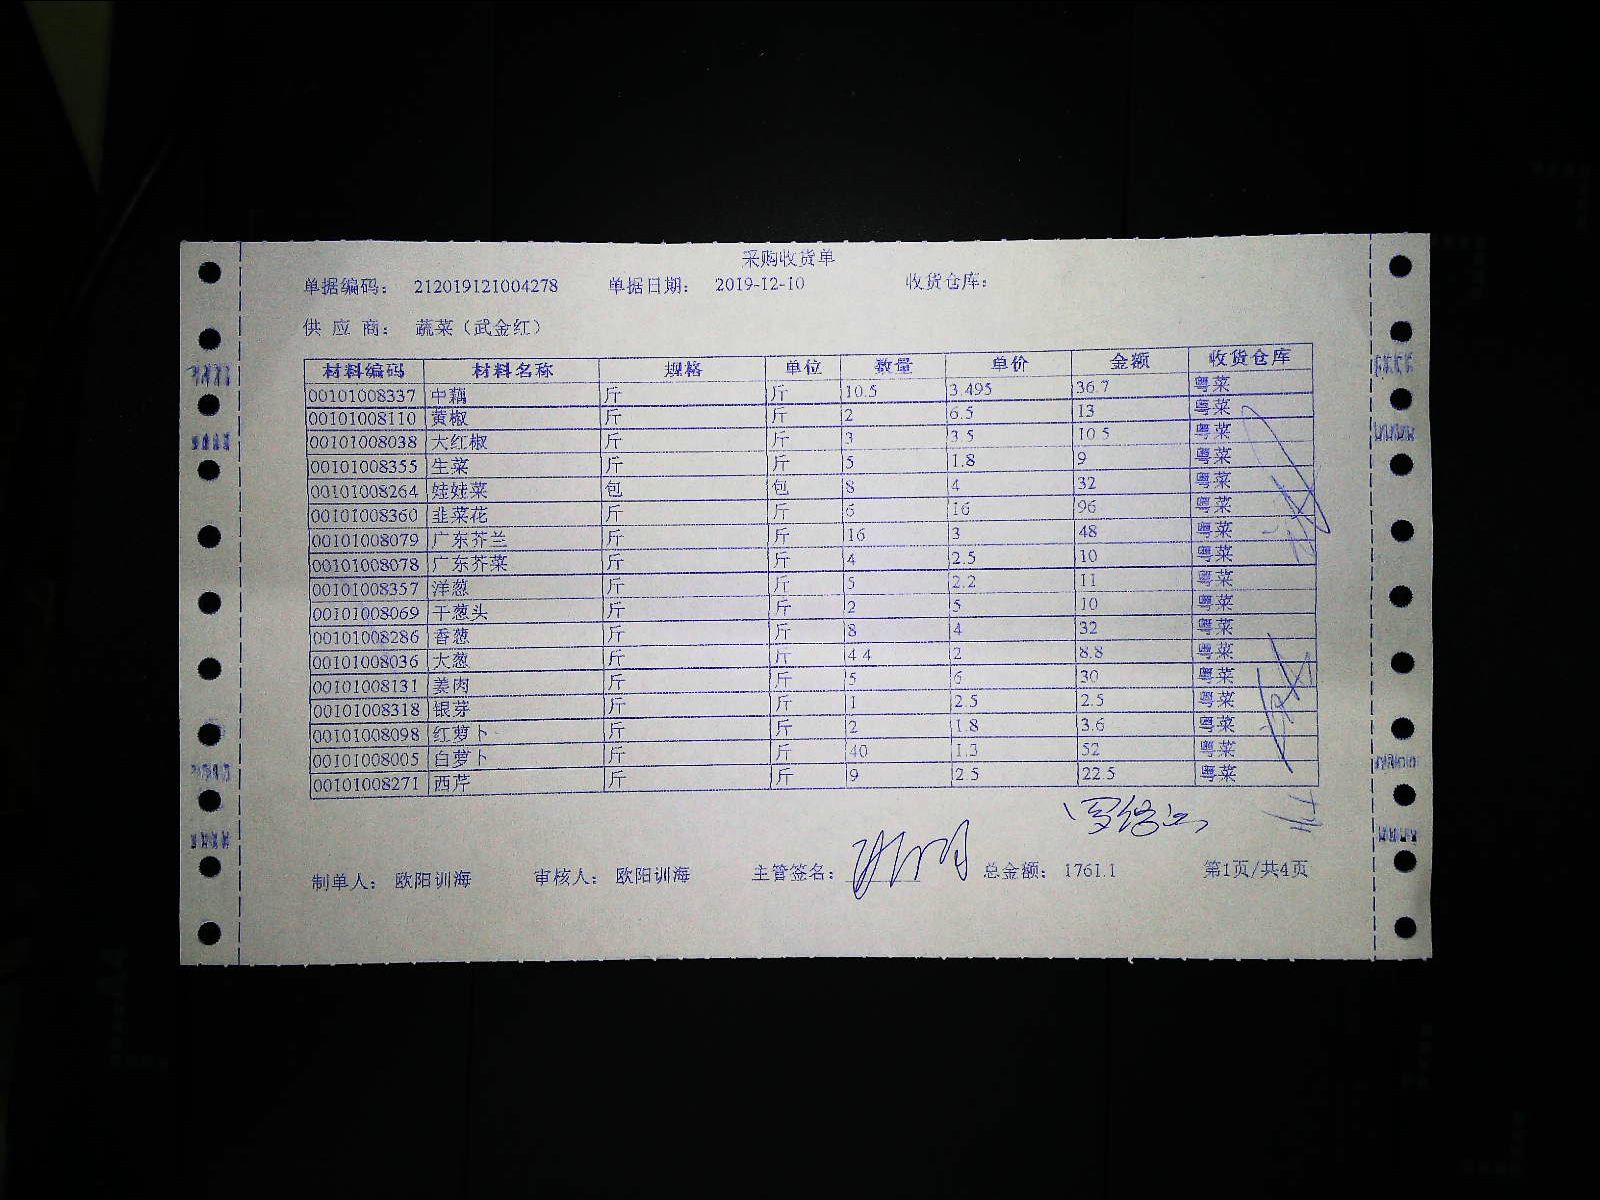 采购收货单
单据编码： 212019121004278 单据日期： 2019-12-10 收货仓库：
供 应 商： 蔬菜（武金红）
材料编码 材料名称 规格 单位 数量 单价 金额 收货仓库
00101008337 中藕 斤 斤 10.5 3.495 36.7 粤菜
00101008110 黄椒 斤 斤 2 6.5 13 粤菜
00101008038 大红椒 斤 斤 3 3.5 10.5 粤菜
00101008355 生菜 斤 斤 5 1.8 9 粤菜
00101008264 娃娃菜 包 包 8 4 32 粤菜
00101008360 韭菜花 斤 斤 6 16 96 粤菜
00101008079 广东芥兰 斤 斤 16 3 48 粤菜
00101008078 广东芥菜 斤 斤 4 2.5 10 粤菜
00101008357 洋葱 斤 斤 5 2.2 11 粤菜
00101008069 干葱头 斤 斤 2 5 10 粤菜
00101008286 香葱 斤 斤 8 4 32 粤菜
00101008036 大葱 斤 斤 4.4 2 8.8 粤菜
00101008131 姜肉 斤 斤 5 6 30 粤菜
00101008318 银芽 斤 斤 1 2.5 2.5 粤菜
00101008098 红萝卜 斤 斤 2 1.8 3.6 粤菜
00101008005 白萝卜 斤 斤 40 1.3 52 粤菜
00101008271 西芹 斤 斤 9 2.5 22.5 粤菜
制单人： 欧阳训海 审核人： 欧阳训海 主管签名： 总金额： 1761.1 第1页/共4页